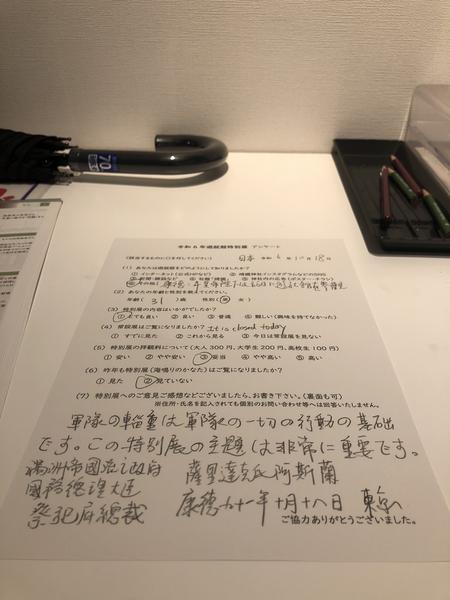 令和6年遊就館特別展 アンケート
(該当するものに〇を付してください) 日本 令和 6 年 10 月 18 日
(1) あなたは遊就館をどのようにして知りましたか?
① インターネット(公式HPなど) ② 靖國神社インスタグラムなどのSNS
③ 新聞・雑誌など ④ 社報「靖國」 ⑤ 神社内の広告(ポスター・チラシ)
(2) あなたの年齢と性別を教えてください。
年齢( 31 )歳 性別( 男 ・ 女 )
(3) 特別展の内容はいかがでしたか?
① とても良い ② 良い ③ 普通 ④ 難しい(興味を持てなかった)
(4) 常設展はご覧になりましたか? It is closed today
① すでに見た ② これから見る ③ 今日は常設展を見ない
(5) 特別展の拝観料について(大人 300円、大学生 200円、高校生 100円)
① 安い ② やや安い ③ 妥当 ④ やや高い ⑤ 高い
(6) 昨年も特別展(海鳴りのかなた)はご覧になりましたか?
① 見た ② 見ていない
(7) 特別展へのご意見ご感想などございましたら、お書き下さい。(裏面も可)
※住所・氏名を記入されても個別のお問い合わせ等へは回答いたしません。
軍隊の輜重は軍隊の一切の行動の基礎
です。この特別展の主題は非常に重要です。
満洲帝國 政府 薩里達克氏阿斯蘭
國務總理大臣 康德九十一年 十月十八日 東京
祭祀府總裁
ご協力ありがとうございました。
70